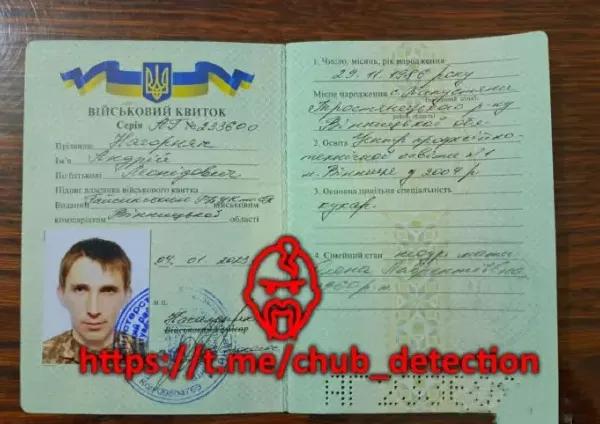 ВІЙСЬКОВИЙ КВИТОК
Серія АГ № 233600
Прізвище Нагорняк
Ім'я Андрій
По батькові Леонідович
Підпис власника військового квитка
Виданий військовим
комісаріатом Вінницької області
04.01.2023
М.П.
1. Число, місяць, рік народження
29.11.1986 року
Місце народження с.
Тростянецького р-ну
Вінницької обл.
2. Освіта Центр професійно-
технічної освіти №1
м. Вінниця у 2004 р
3. Основна цивільна спеціальність
кухар.
4. Сімейний стан мати
https://t.me/chub_detection